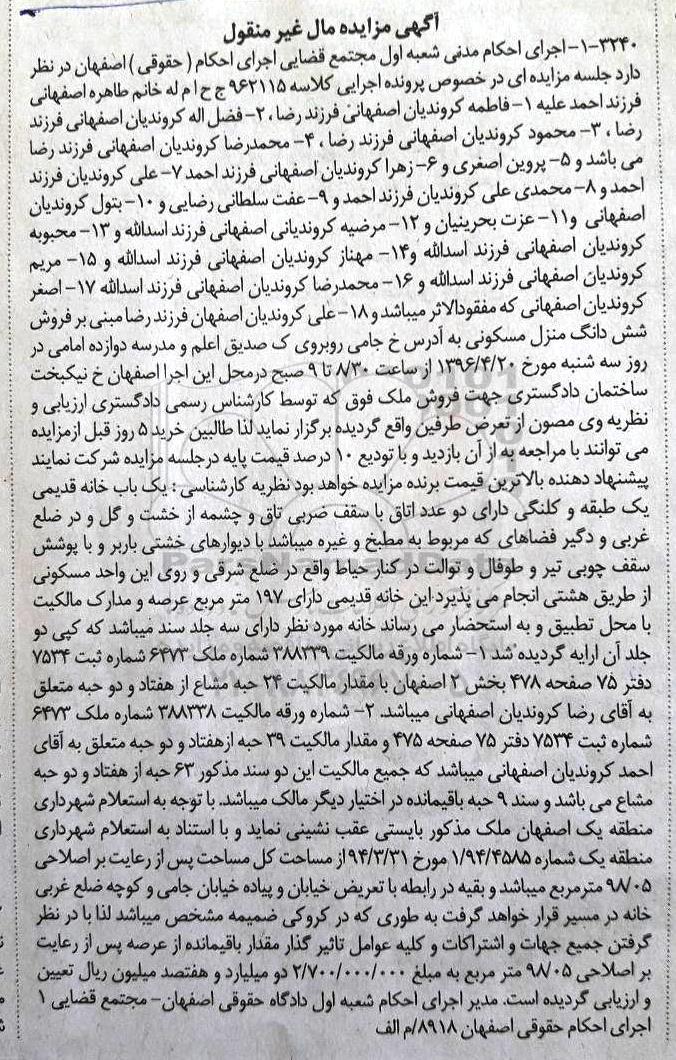 آگهی مزایده مال غیر منقول
۱-۳۲۴۰- اجرای احکام مدنی شعبه اول مجتمع قضایی اجرای احکام ( حقوقی ) اصفهان در نظر
دارد جلسه مزایده ای در خصوص پرونده اجرایی کلاسه ۹۶۲۱۱۵ ج ح ا م له خانم طاهره اصفهانی
فرزند احمد علیه ۱- فاطمه کروندیان اصفهانی فرزند رضا ، ۲- فضل اله کروندیان اصفهانی فرزند
رضا ، ۳- محمود کروندیان اصفهانی فرزند رضا ، ۴- محمدرضا کروندیان اصفهانی فرزند رضا
می باشد و ۵- پروین اصغری و ۶- زهرا کروندیان اصفهانی فرزند احمد ۷- علی کروندیان فرزند
احمد و ۸- محمدی علی کروندیان فرزند احمد و ۹- عفت سلطانی رضایی و ۱۰- بتول کروندیان
اصفهانی و۱۱- عزت بحرینیان و ۱۲- مرضیه کروندیانی اصفهانی فرزند اسدالله و ۱۳- محبوبه
کروندیان اصفهانی فرزند اسدالله و۱۴- مهناز کروندیان اصفهانی فرزند اسدالله و ۱۵- مریم
کروندیان اصفهانی فرزند اسدالله و ۱۶- محمدرضا کروندیان اصفهانی فرزند اسدالله ۱۷- اصغر
کروندیان اصفهانی که مفقودالاثر میباشد و ۱۸- علی کروندیان اصفهان فرزند رضا مبنی بر فروش
شش دانگ منزل مسکونی به آدرس خ جامی روبروی ک صدیق اعلم و مدرسه دوازده امامی در
روز سه شنبه مورخ ۱۳۹۶/۴/۲۰ از ساعت ۸/۳۰ تا ۹ صبح درمحل این اجرا اصفهان خ نیکبخت
ساختمان دادگستری جهت فروش ملک فوق که توسط کارشناس رسمی دادگستری ارزیابی و
نظریه وی مصون از تعرض طرفین واقع گردیده برگزار نماید لذا طالبین خرید ۵ روز قبل ازمزایده
می توانند با مراجعه به از آن بازدید و با تودیع ۱۰ درصد قیمت پایه درجلسه مزایده شرکت نمایند
پیشنهاد دهنده بالاترین قیمت برنده مزایده خواهد بود نظریه کارشناسی : یک باب خانه قدیمی
یک طبقه و کلنگی دارای دو عدد اتاق با سقف ضربی تاق و چشمه از خشت و گل و در ضلع
غربی و دگیر فضاهای که مربوط به مطبخ و غیره میباشد با دیوارهای خشتی باربر و با پوشش
سقف چوبی تیر و طوفال و توالت در کنار حیاط واقع در ضلع شرقی و روی این واحد مسکونی
از طریق هشتی انجام می پذیرد.این خانه قدیمی دارای ۱۹۷ متر مربع عرصه و مدارک مالکیت
با محل تطبیق و به استحضار می رساند خانه مورد نظر دارای سه جلد سند میباشد که کپی دو
جلد آن ارایه گردیده شد ۱- شماره ورقه مالکیت ۳۸۸۳۳۹ شماره ملک ۶۴۷۳ شماره ثبت ۷۵۳۴
دفتر ۷۵ صفحه ۴۷۸ بخش ۲ اصفهان با مقدار مالکیت ۲۴ حبه مشاع از هفتاد و دو حبه متعلق
به آقای رضا کروندیان اصفهانی میباشد. ۲- شماره ورقه مالکیت ۳۸۸۳۳۸ شماره ملک ۶۴۷۳
شماره ثبت ۷۵۳۴ دفتر ۷۵ صفحه ۴۷۵ و مقدار مالکیت ۳۹ حبه ازهفتاد و دو حبه متعلق به آقای
احمد کروندیان اصفهانی میباشد که جمیع مالکیت این دو سند مذکور ۶۳ حبه از هفتاد و دو حبه
مشاع می باشد و سند ۹ حبه باقیمانده در اختیار دیگر مالک میباشد. با توجه به استعلام شهرداری
منطقه یک اصفهان ملک مذکور بایستی عقب نشینی نماید و با استناد به استعلام شهرداری
منطقه یک شماره ۱/۹۴/۴۵۸۵ مورخ ۹۴/۳/۳۱ از مساحت کل مساحت پس از رعایت بر اصلاحی
۹۸/۰۵ مترمربع میباشد و بقیه در رابطه با تعریض خیابان و پیاده خیابان جامی و کوچه ضلع غربی
خانه در مسیر قرار خواهد گرفت به طوری که در کروکی ضمیمه مشخص میباشد لذا با در نظر
گرفتن جمیع جهات و اشتراکات و کلیه عوامل تاثیر گذار مقدار باقیمانده از عرصه پس از رعایت
بر اصلاحی ۹۸/۰۵ متر مربع به مبلغ ۲/۷۰۰/۰۰۰/۰۰۰ دو میلیارد و هفتصد میلیون ریال تعیین
و ارزیابی گردیده است. مدیر اجرای احکام شعبه اول دادگاه حقوقی اصفهان- مجتمع قضایی ۱
اجرای احکام حقوقی اصفهان ۸۹۱۸/م الف